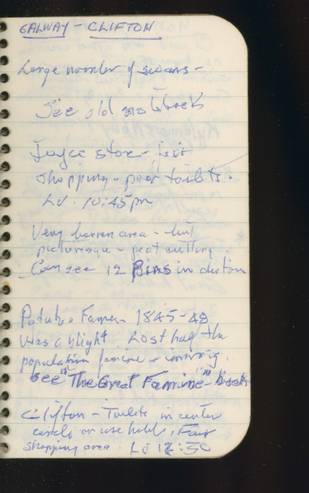 GALWAY - CLIFTON
Large number of swans -
See old notebook
Joyce store -
Shopping - poor toilets.
Lv. 10:45 pm
Very barren area - but
picturesque - peat cutting.
Can see 12 Bins in
Potato Famen 1845-48
Was a blight. Lost half the
population famine &
See "The Great Famine" Book
Clifton - Toilets in center
or use hotels. Fair
Shopping area Lv 12:30